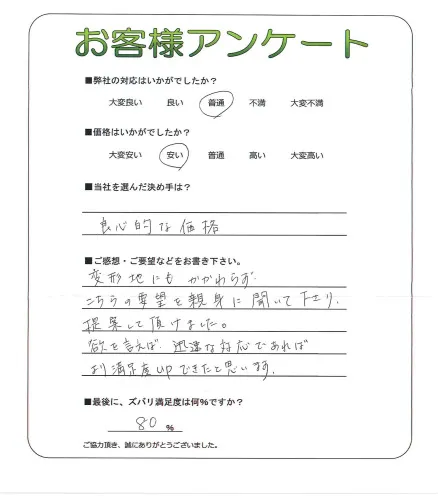 お客様アンケート
■弊社の対応はいかがでしたか？
大変良い 良い 普通 不満 大変不満
■価格はいかがでしたか？
大変安い 安い 普通 高い 大変高い
■当社を選んだ決め手は？
良心的な価格
■ご感想・ご要望などをお書き下さい。
変形地にもかかわらず
こちらの要望を親身に聞いて下さり、
提案して頂けました。
欲を言えば、迅速な対応であれば
より満足度UPできたと思います。
■最後に、ズバリ満足度は何％ですか？
80 ％
ご協力頂き、誠にありがとうございました。